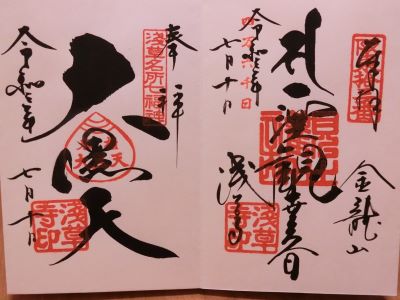 奉拝
金龍山
観世音
四万六千日
令和
七月十日
浅草寺
浅草寺印
奉拝
浅草名所七福神
大黒天
令和 年
七月十日
浅草寺印